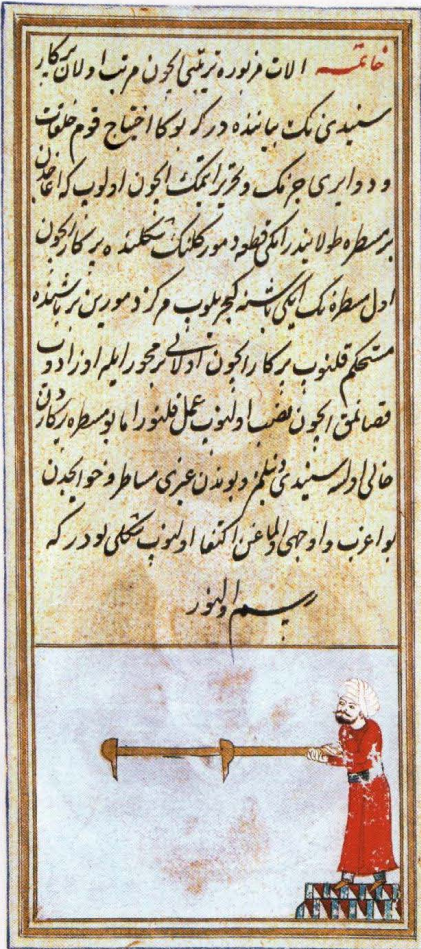 خاتمه الات مزبوره ترتیبی ایچون مرتب اولان پرکار
سنیدی نک بیاننده در که بوکا احتیاج قوم خلقات
و دوایری چزمک و تحریر ایتمک ایچون اولوب که اغاجدن
بر مسطره طولا نیدر ایکی قطعه دمور کلنک شکلنده پرکار ایچون
اول مسطره نک ایکی باشنه کچریلوب مرکز دمورین بر باشنده
مستحکم قلنوب پرکار ایچون اولانی بر محور ایله اوزادوب
قصاتمق ایچون نصب اولنوب عمل قلنور اما بو مسطره پرکاردن
خالی اولسه سنیدی دنیلمز و بوندن غیری مساطر و
بو اغرب و اوجهی اکتفا اولنوب شکلی بودر که
رسم اولنور